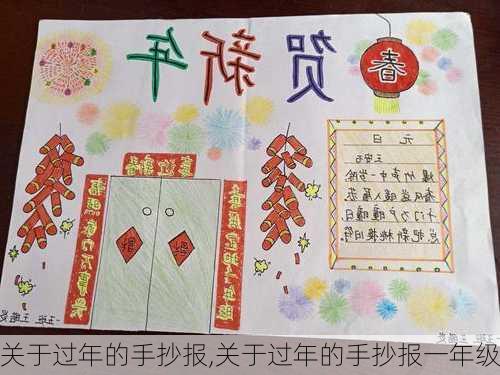 贺新年
春
元日
王安石
爆竹声中一岁除
春风送暖入屠苏
千门万户曈曈日
总把新桃换旧符
喜迎新春
关于过年的手抄报,关于过年的手抄报一年级